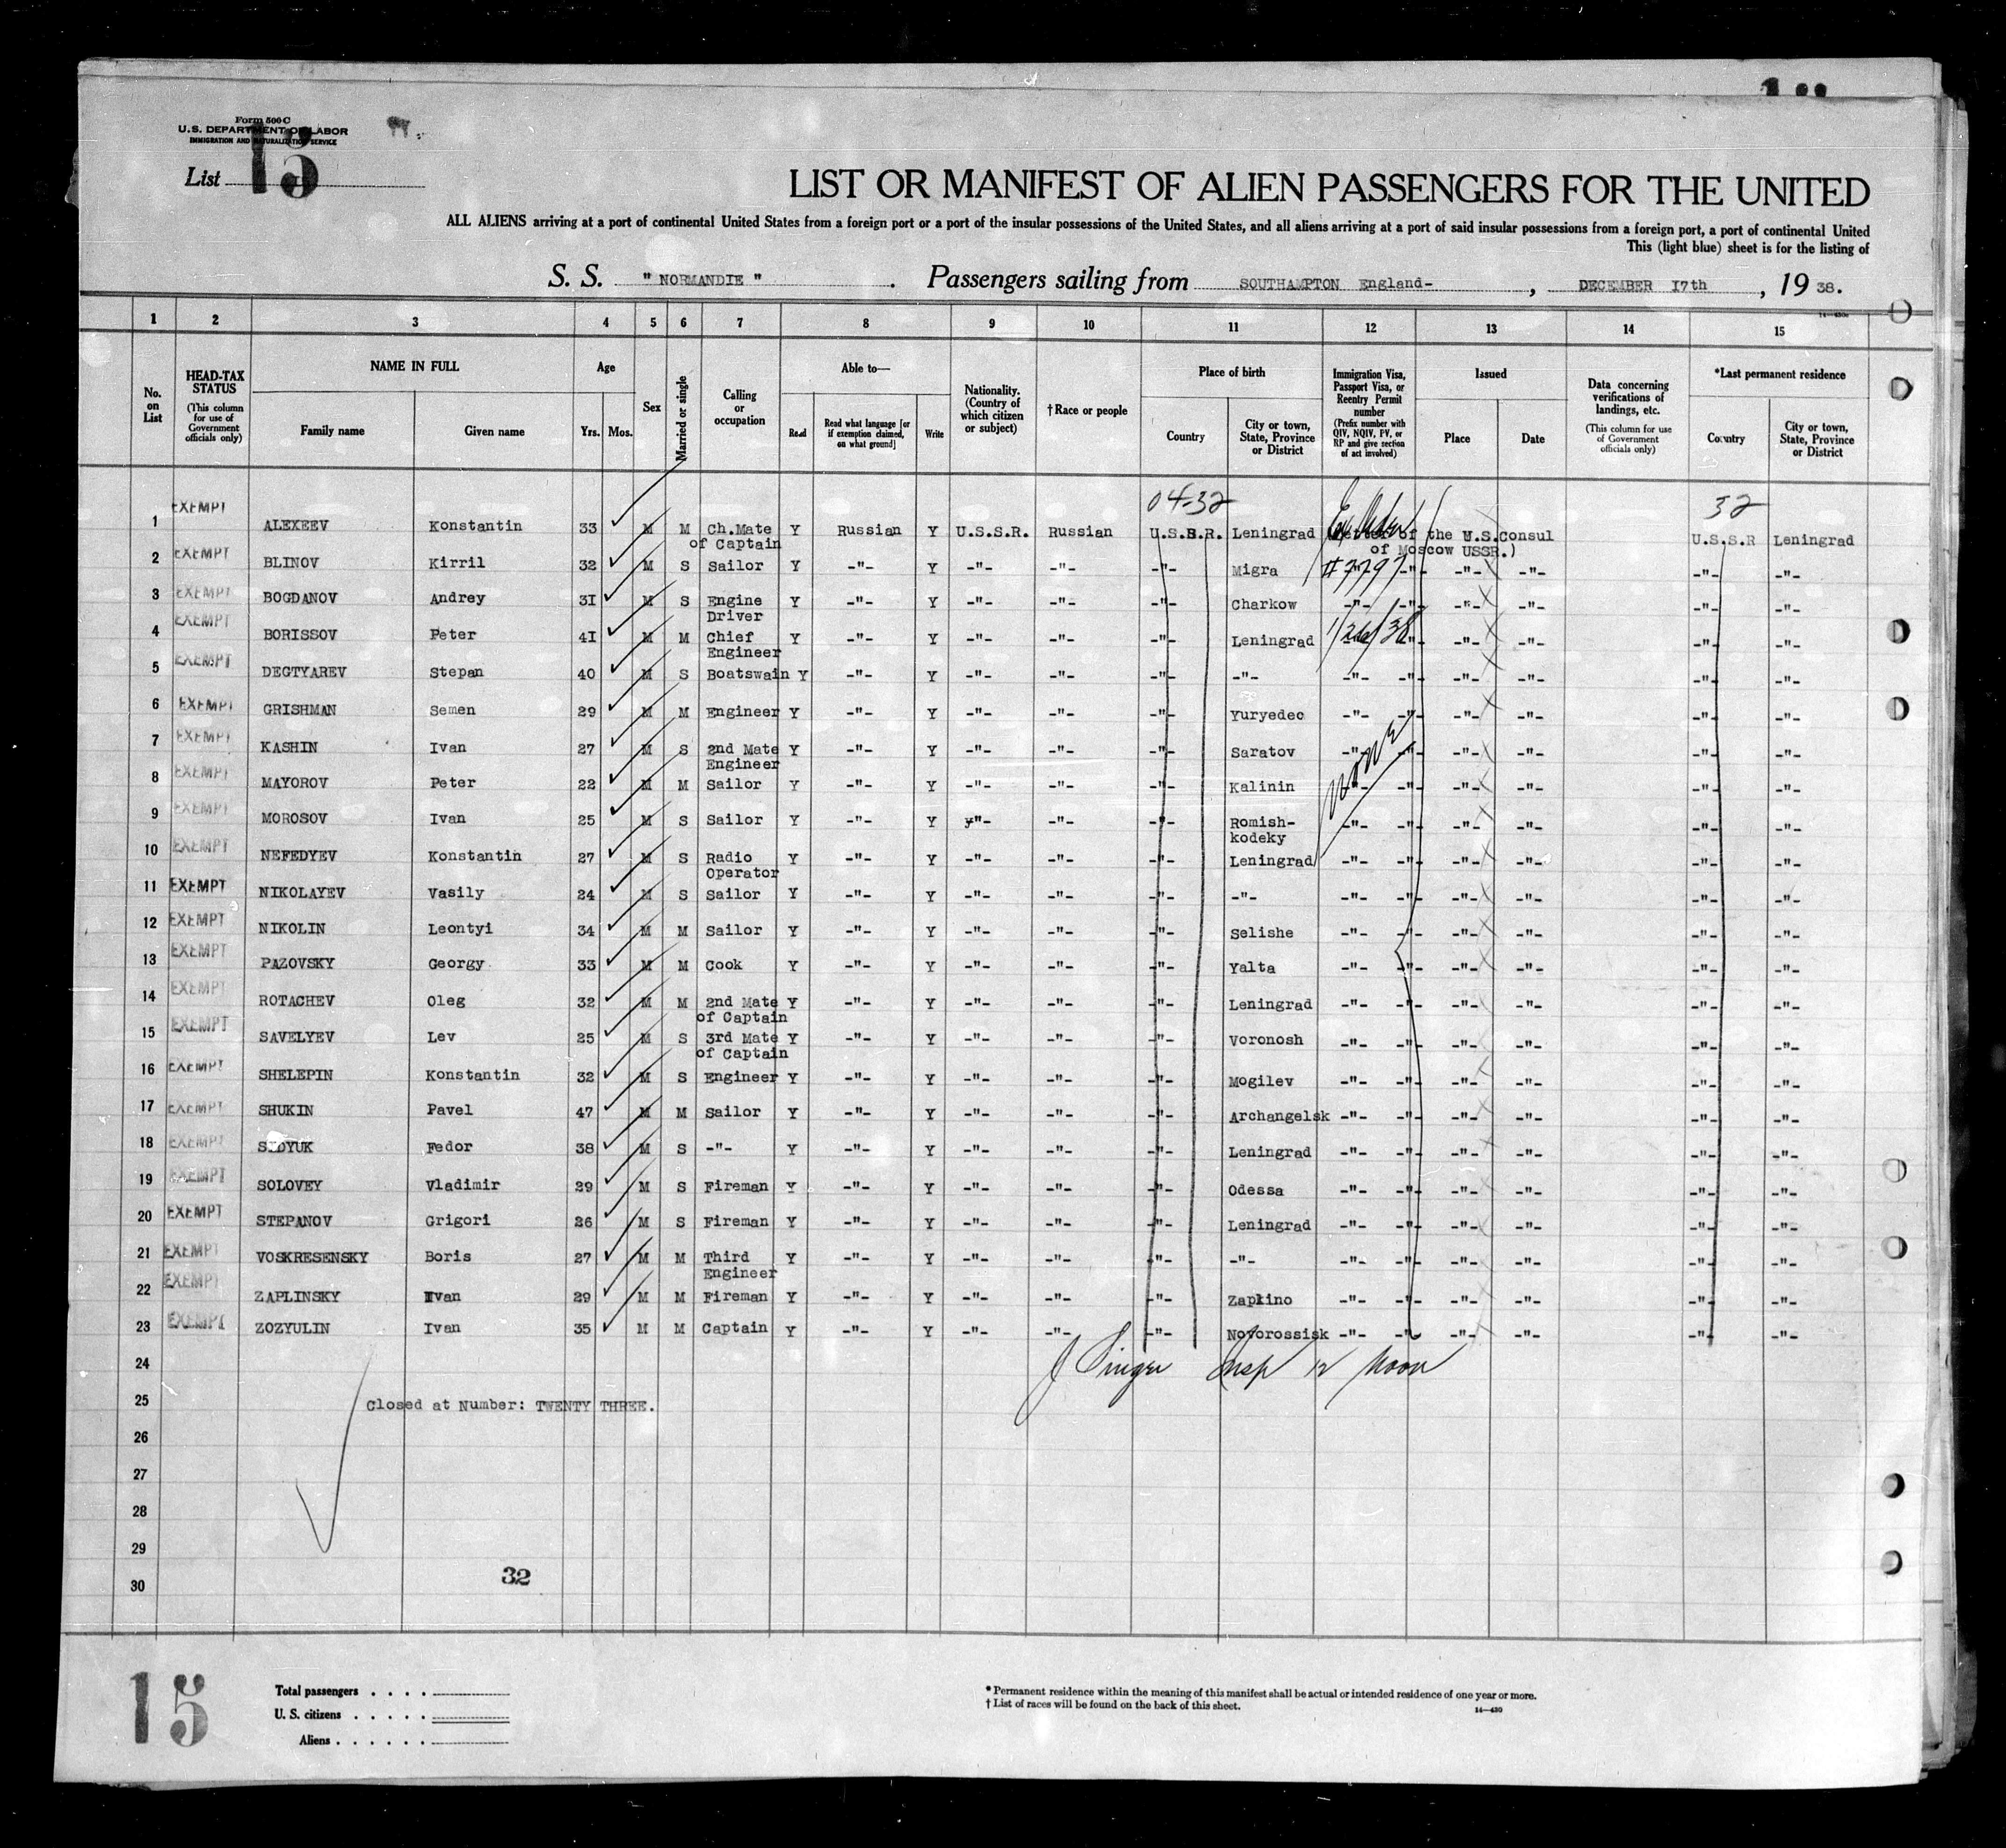 Form 500 C
U.S. DEPARTMENT OF LABOR
IMMIGRATION AND NATURALIZATION SERVICE
List 15
LIST OR MANIFEST OF ALIEN PASSENGERS FOR THE UNITED
ALL ALIENS arriving at a port of continental United States from a foreign port or a port of the insular possessions of the United States, and all aliens arriving at a port of said insular possessions from a foreign port, a port of continental United
This (light blue) sheet is for the listing of
S. S. " NORMANDIE " . Passengers sailing from SOUTHAMPTON England- , DECEMBER 17th , 19 38.
1 2 3 4 5 6 7 8 9 10 11 12 13 14 15
No. on List
HEAD-TAX STATUS (This column for use of Government officials only)
NAME IN FULL
Family name
Given name
Age
Yrs. Mos.
Sex
Married or single
Calling or occupation
Able to—
Read
Read what language [or if exemption claimed, on what ground]
Write
Nationality. (Country of which citizen or subject)
† Race or people
Place of birth
Country
City or town, State, Province or District
Immigration Visa, Passport Visa, or Reentry Permit number (Prefix number with QIV, NQIV, PV, or RP and give section of act involved)
Issued
Place
Date
Data concerning verifications of landings, etc. (This column for use of Government officials only)
*Last permanent residence
Country
City or town, State, Province or District
04-32 32
1 EXEMPT ALEXEEV Konstantin 33 M M Ch.Mate of Captain Y Russian Y U.S.S.R. Russian U.S.S.R. Leningrad of the U.S.Consul of Moscow USSR.) U.S.S.R Leningrad
2 EXEMPT BLINOV Kirril 32 M S Sailor Y -"- Y -"- -"- -"- Migra #7797 -"- -"- -"- -"- -"-
3 EXEMPT BOGDANOV Andrey 31 M S Engine Driver Y -"- Y -"- -"- -"- Charkow -"- -"- -"- -"- -"- -"-
4 EXEMPT BORISSOV Peter 41 M M Chief Engineer Y -"- Y -"- -"- -"- Leningrad 1/26/38 -"- -"- -"- -"- -"-
5 EXEMPT DEGTYAREV Stepan 40 M S Boatswain Y -"- Y -"- -"- -"- -"- -"- -"- -"- -"- -"- -"-
6 EXEMPT GRISHMAN Semen 29 M M Engineer Y -"- Y -"- -"- -"- Yuryedec -"- -"- -"- -"- -"- -"-
7 EXEMPT KASHIN Ivan 27 M S 2nd Mate Engineer Y -"- Y -"- -"- -"- Saratov -"- -"- -"- -"- -"- -"-
8 EXEMPT MAYOROV Peter 22 M M Sailor Y -"- Y -"- -"- -"- Kalinin None -"- -"- -"- -"- -"- -"-
9 EXEMPT MOROSOV Ivan 25 M S Sailor Y -"- Y -"- -"- -"- Romish-kodeky -"- -"- -"- -"- -"- -"-
10 EXEMPT NEFEDYEV Konstantin 27 M S Radio Operator Y -"- Y -"- -"- -"- Leningrad -"- -"- -"- -"- -"- -"-
11 EXEMPT NIKOLAYEV Vasily 24 M S Sailor Y -"- Y -"- -"- -"- -"- -"- -"- -"- -"- -"- -"-
12 EXEMPT NIKOLIN Leontyi 34 M M Sailor Y -"- Y -"- -"- -"- Selishe -"- -"- -"- -"- -"- -"-
13 EXEMPT PAZOVSKY Georgy 33 M M Cook Y -"- Y -"- -"- -"- Yalta -"- -"- -"- -"- -"- -"-
14 EXEMPT ROTACHEV Oleg 32 M M 2nd Mate of Captain Y -"- Y -"- -"- -"- Leningrad -"- -"- -"- -"- -"- -"-
15 EXEMPT SAVELYEV Lev 25 M S 3rd Mate of Captain Y -"- Y -"- -"- -"- Voronosh -"- -"- -"- -"- -"- -"-
16 EXEMPT SHELEPIN Konstantin 32 M S Engineer Y -"- Y -"- -"- -"- Mogilev -"- -"- -"- -"- -"- -"-
17 EXEMPT SHUKIN Pavel 47 M M Sailor Y -"- Y -"- -"- -"- Archangelsk -"- -"- -"- -"- -"- -"-
18 EXEMPT Fedor 38 M S -"- Y -"- Y -"- -"- -"- Leningrad -"- -"- -"- -"- -"- -"-
19 EXEMPT SOLOVEY Vladimir 29 M S Fireman Y -"- Y -"- -"- -"- Odessa -"- -"- -"- -"- -"- -"-
20 EXEMPT STEPANOV Grigori 26 M S Fireman Y -"- Y -"- -"- -"- Leningrad -"- -"- -"- -"- -"- -"-
21 EXEMPT VOSKRESENSKY Boris 27 M M Third Engineer Y -"- Y -"- -"- -"- -"- -"- -"- -"- -"- -"- -"-
22 EXEMPT ZAPLINSKY Ivan 29 M M Fireman Y -"- Y -"- -"- -"- Zaplino -"- -"- -"- -"- -"- -"-
23 EXEMPT ZOZYULIN Ivan 35 M M Captain Y -"- Y -"- -"- -"- Novorossisk -"- -"- -"- -"- -"- -"-
24 J Singer Insp 12 Noon
25 Closed at Number: TWENTY THREE.
26
27
28
29
30
32
15
Total passengers . . . .
U. S. citizens . . . . .
Aliens . . . . . .
* Permanent residence within the meaning of this manifest shall be actual or intended residence of one year or more.
† List of races will be found on the back of this sheet.
14—430